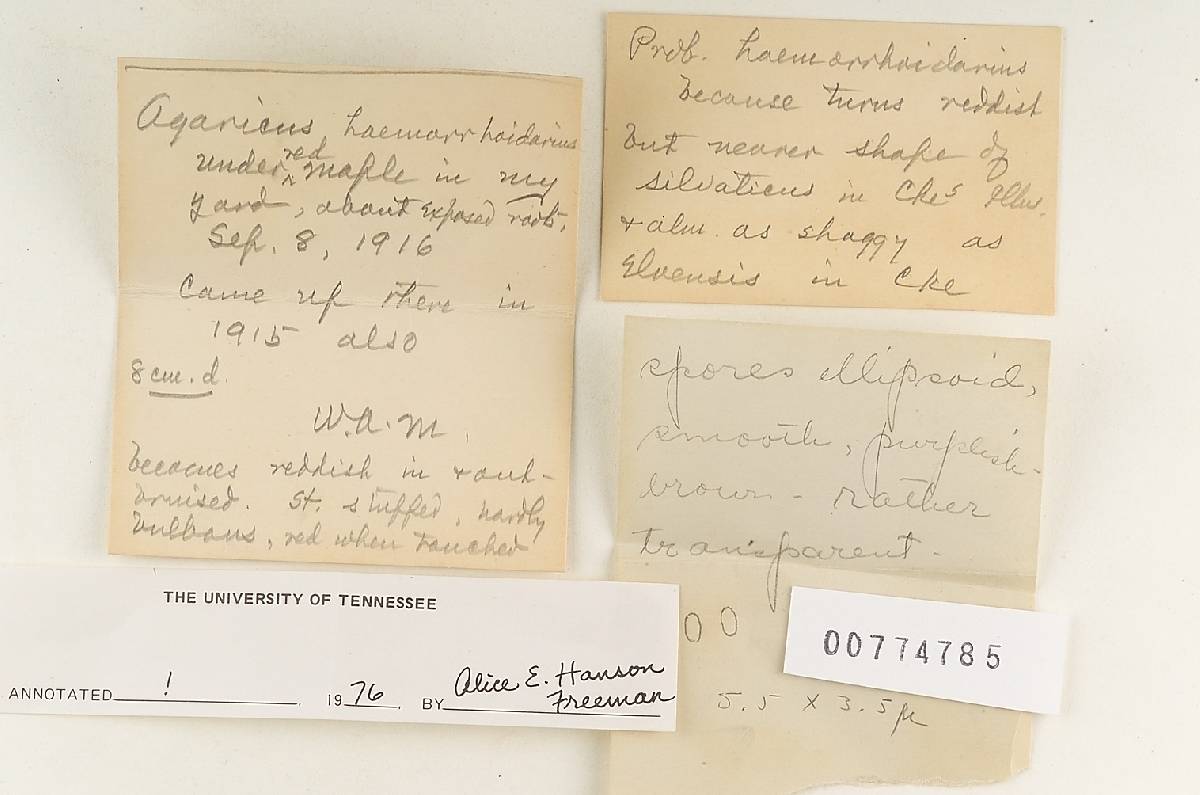 Agaricus haemorrhoidarius
under red maple in my
yard, about exposed roots,
Sep. 8, 1916
Came up there in
1915 also
8 cm. d.
W.A.M.
becomes reddish in + out-
bruised. St. stuffed, hardly
bulbous, red when touched
Prob. haemorrhoidarius
because turns reddish
but nearer shape of
silvaticus in Cke's Illus.
+ alm. as shaggy as
Elvensis in Cke
spores ellipsoid,
smooth, purplish-
brown - rather
transparent.
5.5 x 3.5 µ
00774785
THE UNIVERSITY OF TENNESSEE
ANNOTATED ! 1976. BY Alice E. Hanson
Freeman